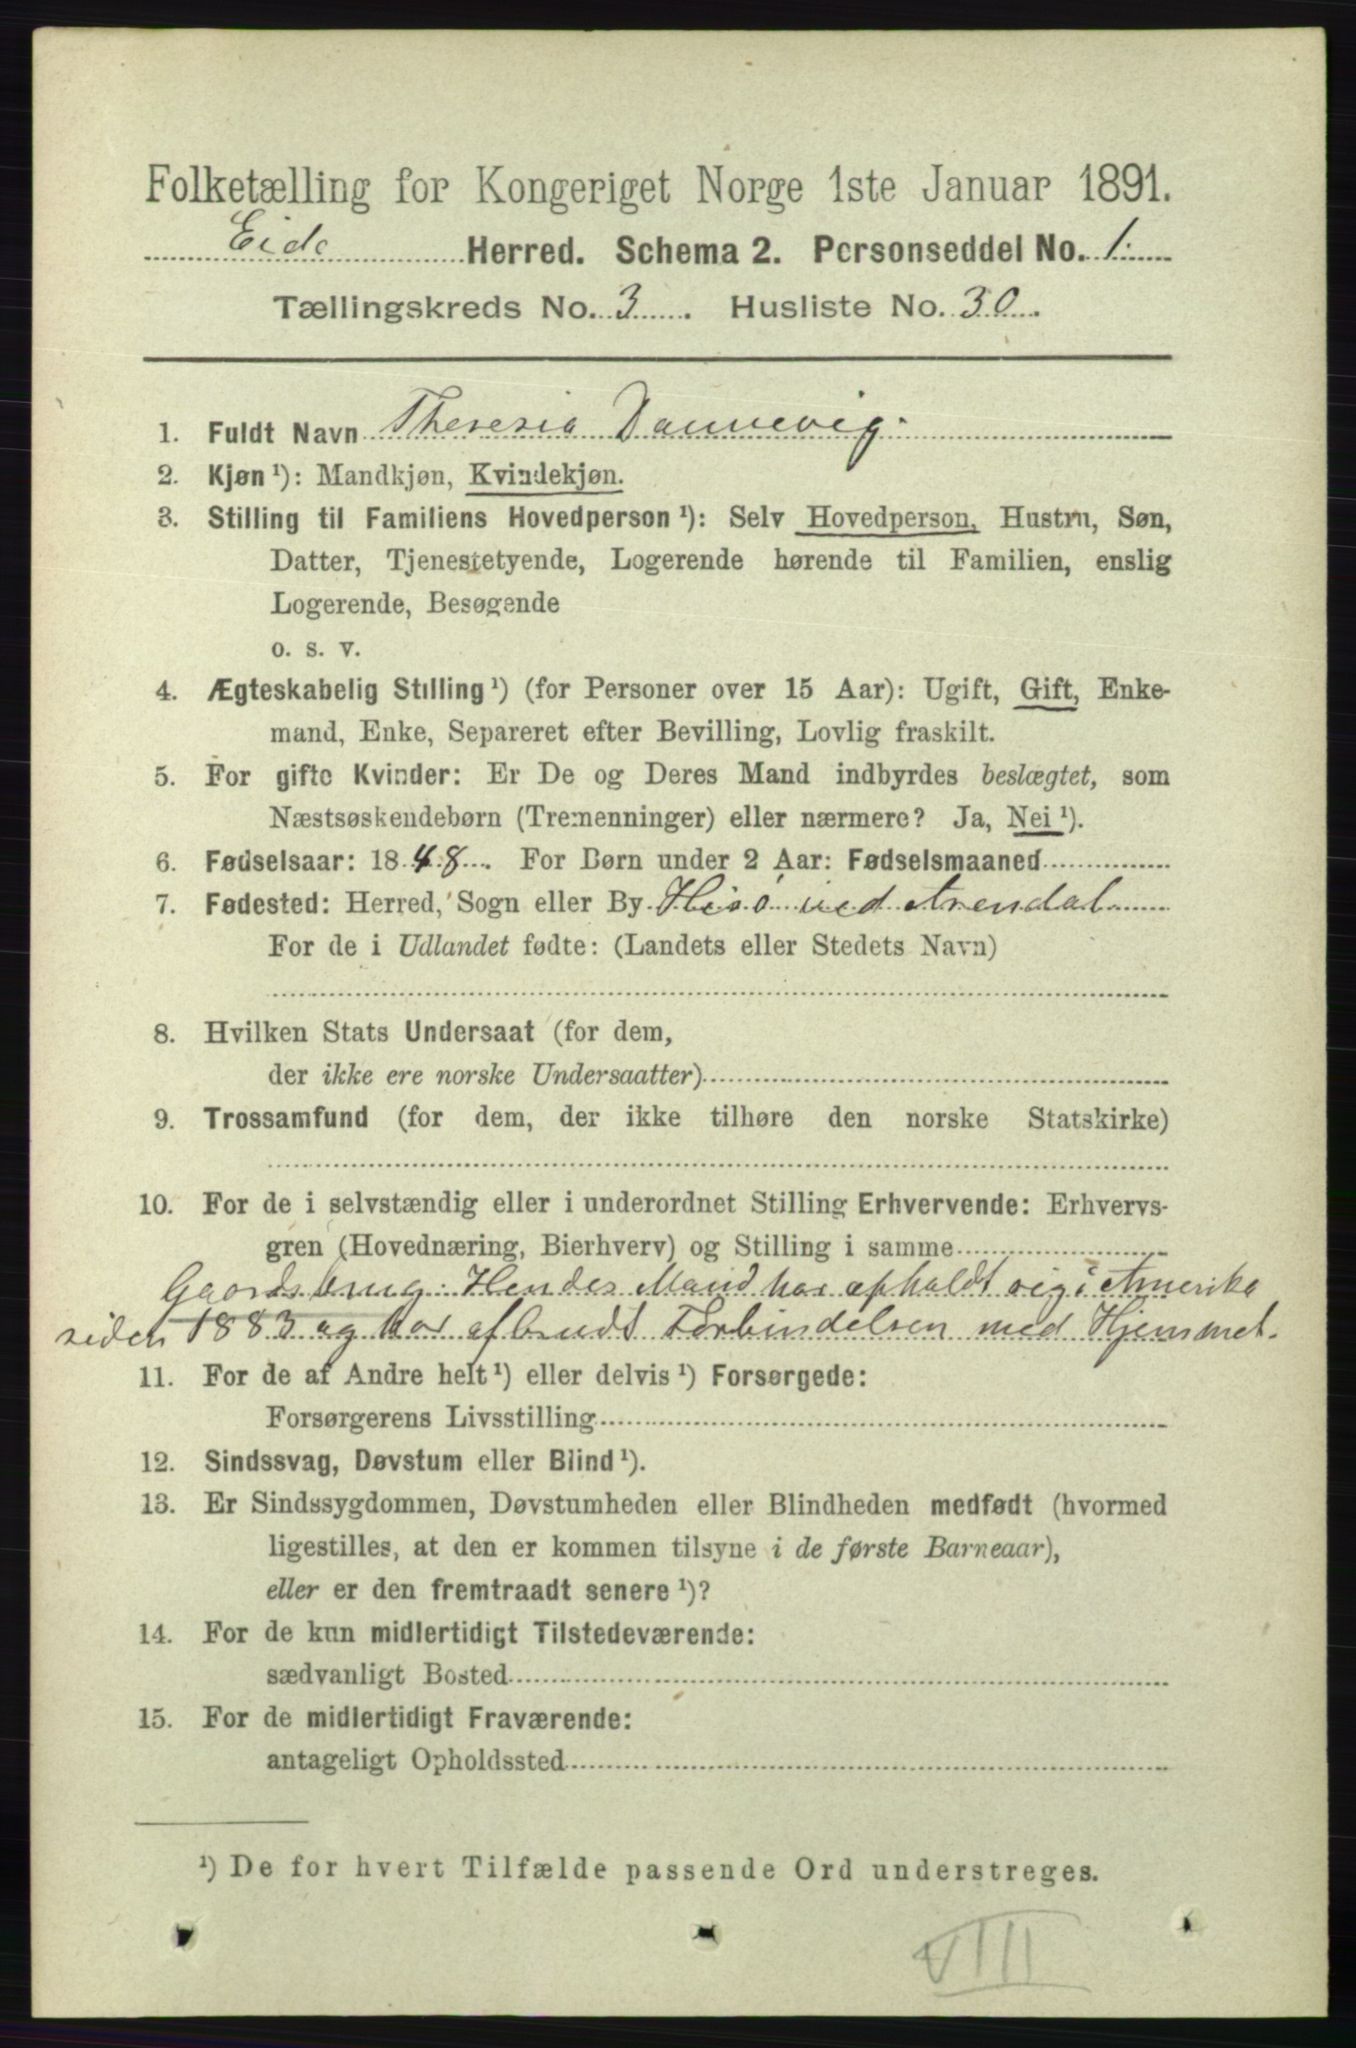 Folketælling for Kongeriget Norge 1ste Januar 1891.
Eide Herred. Schema 2. Personseddel No. 1.
Tællingskreds No. 3. Husliste No. 30.
1. Fuldt Navn Theresia Dannevig.
2. Kjøn ¹): Mandkjøn, Kvindekjøn.
3. Stilling til Familiens Hovedperson ¹): Selv Hovedperson, Hustru, Søn,
Datter, Tjenestetyende, Logerende hørende til Familien, enslig
Logerende, Besøgende
o. s. v.
4. Ægteskabelig Stilling ¹) (for Personer over 15 Aar): Ugift, Gift, Enke-
mand, Enke, Separeret efter Bevilling, Lovlig fraskilt.
5. For gifte Kvinder: Er De og Deres Mand indbyrdes beslægtet, som
Næstsøskendebørn (Tremenninger) eller nærmere? Ja, Nei ¹).
6. Fødselsaar: 1848. For Børn under 2 Aar: Fødselsmaaned
7. Fødested: Herred, Sogn eller By Hisø ved Arendal
For de i Udlandet fødte: (Landets eller Stedets Navn)
8. Hvilken Stats Undersaat (for dem,
der ikke ere norske Undersaatter)
9. Trossamfund (for dem, der ikke tilhøre den norske Statskirke)
10. For de i selvstændig eller i underordnet Stilling Erhvervende: Erhvervs-
gren (Hovednæring, Bierhverv) og Stilling i samme
Gaardsbrug. Hendes Mand har opholdt sig i Amerika
siden 1883 og har afbrudt Forbindelsen med Hjemmet.
11. For de af Andre helt ¹) eller delvis ¹) Forsørgede:
Forsørgerens Livsstilling
12. Sindssvag, Døvstum eller Blind ¹).
13. Er Sindssygdommen, Døvstumheden eller Blindheden medfødt (hvormed
ligestilles, at den er kommen tilsyne i de første Barneaar),
eller er den fremtraadt senere ¹)?
14. For de kun midlertidigt Tilstedeværende:
sædvanligt Bosted
15. For de midlertidigt Fraværende:
antageligt Opholdssted
¹) De for hvert Tilfælde passende Ord understreges.
VIII